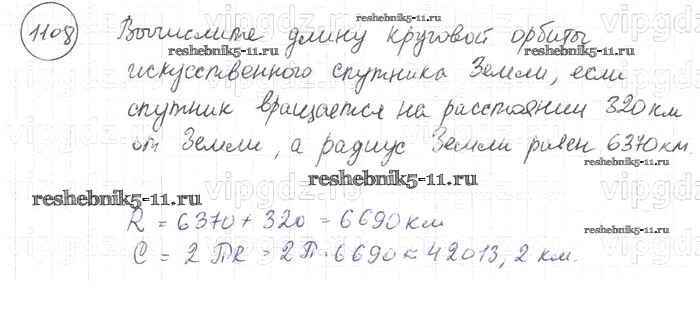 1108 Вычислите длину круговой орбиты
искусственного спутника Земли, если
спутник вращается на расстоянии 320 км
от Земли, а радиус Земли равен 6370 км.
R = 6370 + 320 = 6690 км
C = 2πR = 2π·6690 = 42013,2 км.
reshebnik5-11.ru
reshebnik5-11.ru
reshebnik5-11.ru
reshebnik5-11.ru
reshebnik5-11.ru
reshebnik5-11.ru
reshebnik5-11.ru